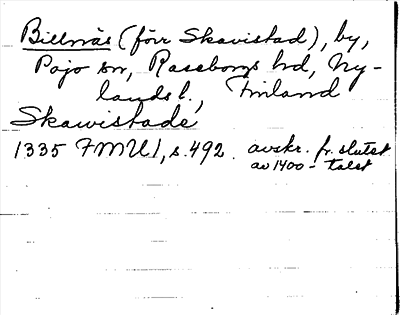 Billnäs (förr Skavistad), by,
Pojo sn, Raseborgs hd, Ny-
lands l., Finland
Skawistade
1335 FMU I, s. 492. avskr. fr. slutet
av 1400-talet